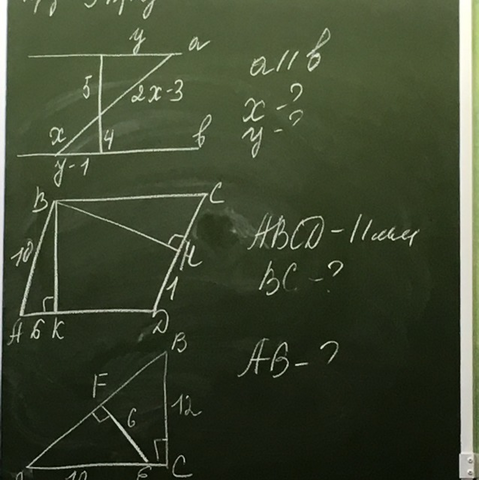 y a
5 2x-3
x 4 b
y-1
a||b
x-?
y-?
B C
10 H
1
A 6 K D
ABCD-||
BC-?
B
F
6 12
E C
AB-?